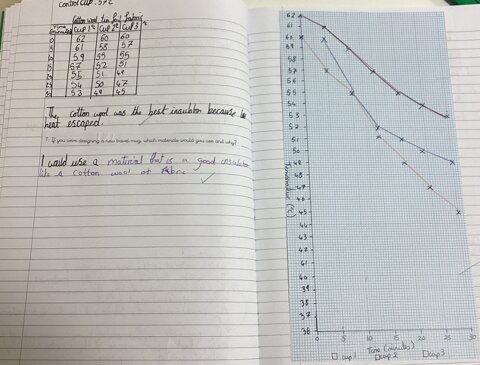 Control cup: 57°C
Cotton wool Tin foil Fabric
Time (minutes) Cup 1°C Cup 2°C Cup 3°C
0 62 60 60
5 61 58 57
10 59 55 55
15 57 52 51
20 55 51 49
25 54 50 47
30 53 49 45
The cotton wool was the best insulator because
heat escaped.
7. If you were designing a new travel mug, which materials would you use and why?
I would use a material that is a good insulator
like cotton wool or fabric
62
61
59
57
56
55
54
53
52
51
50
49
48
47
46
45
44
43
42
41
40
39
38
37
36
Temperature (°C)
0 5 10 15 20 25 30
Time (minutes)
cup 1 cup 2 cup 3